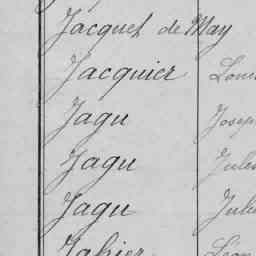 Jacquet de May
Jacquier Loui
Jagu Josep
Jagu Jules
Jagu Jule
Jahier Léon